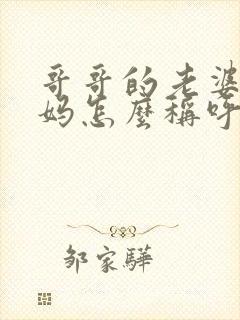 哥哥的老婆
妈怎麼稱呼
邹家驊